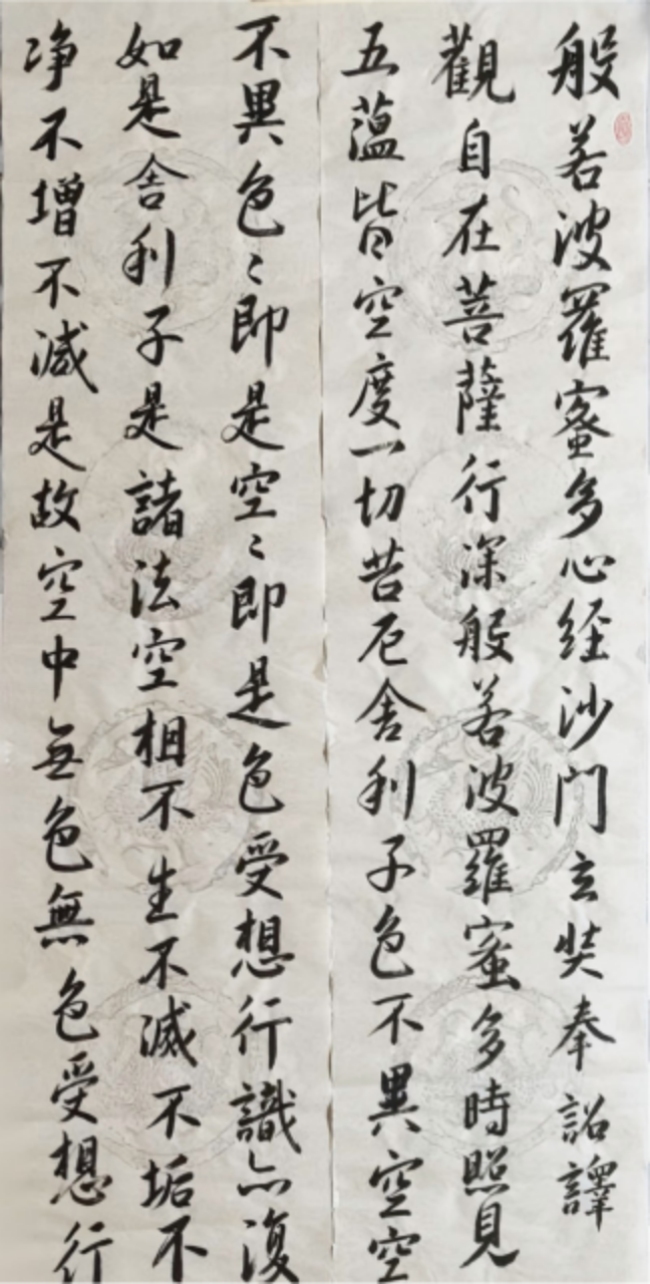 般若波羅蜜多心经沙門玄奘奉詔譯
觀自在菩薩行深般若波羅蜜多時照見
五蘊皆空度一切苦厄舍利子色不異空空
不異色〻即是空〻即是色受想行識亦復
如是舍利子是諸法空相不生不滅不垢不
净不增不減是故空中無色無色受想行